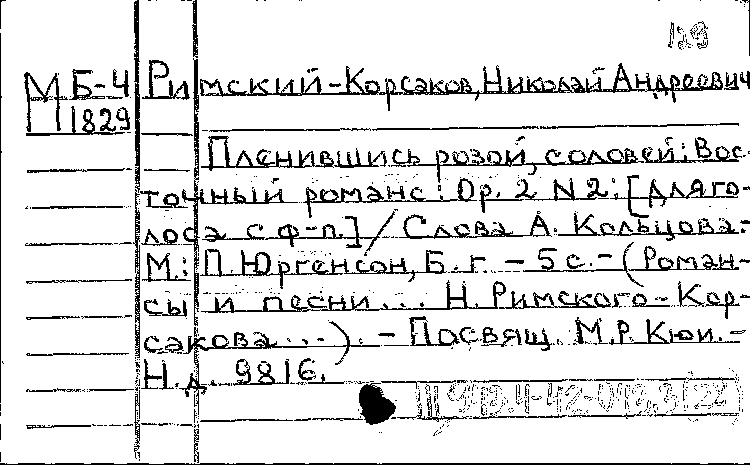 129
МБ-4 Римский-Корсаков, Николай Андреевич
Н 1829
Пленившись розой, соловей: Вос-
точный романс: Op. 2 N 2: [Для го-
лоса с ф-п.] / Слова А. Кольцова.-
М.: П. Юргенсон, Б. г. - 5 с. - (Роман-
сы и песни... Н. Римского-Кор-
сакова...). - Посвящ. М.Р. Кюи. -
Н.д. 9816.